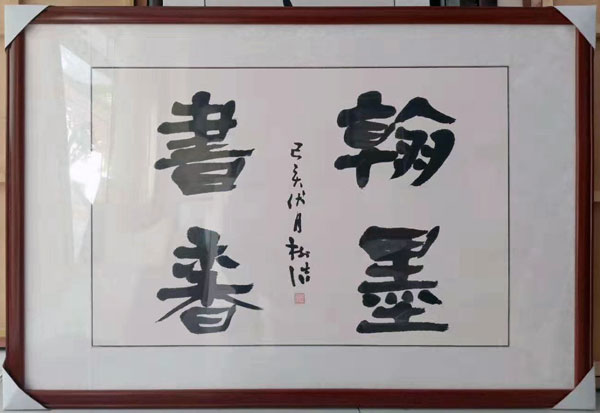 翰墨
書香
己亥伏月浩